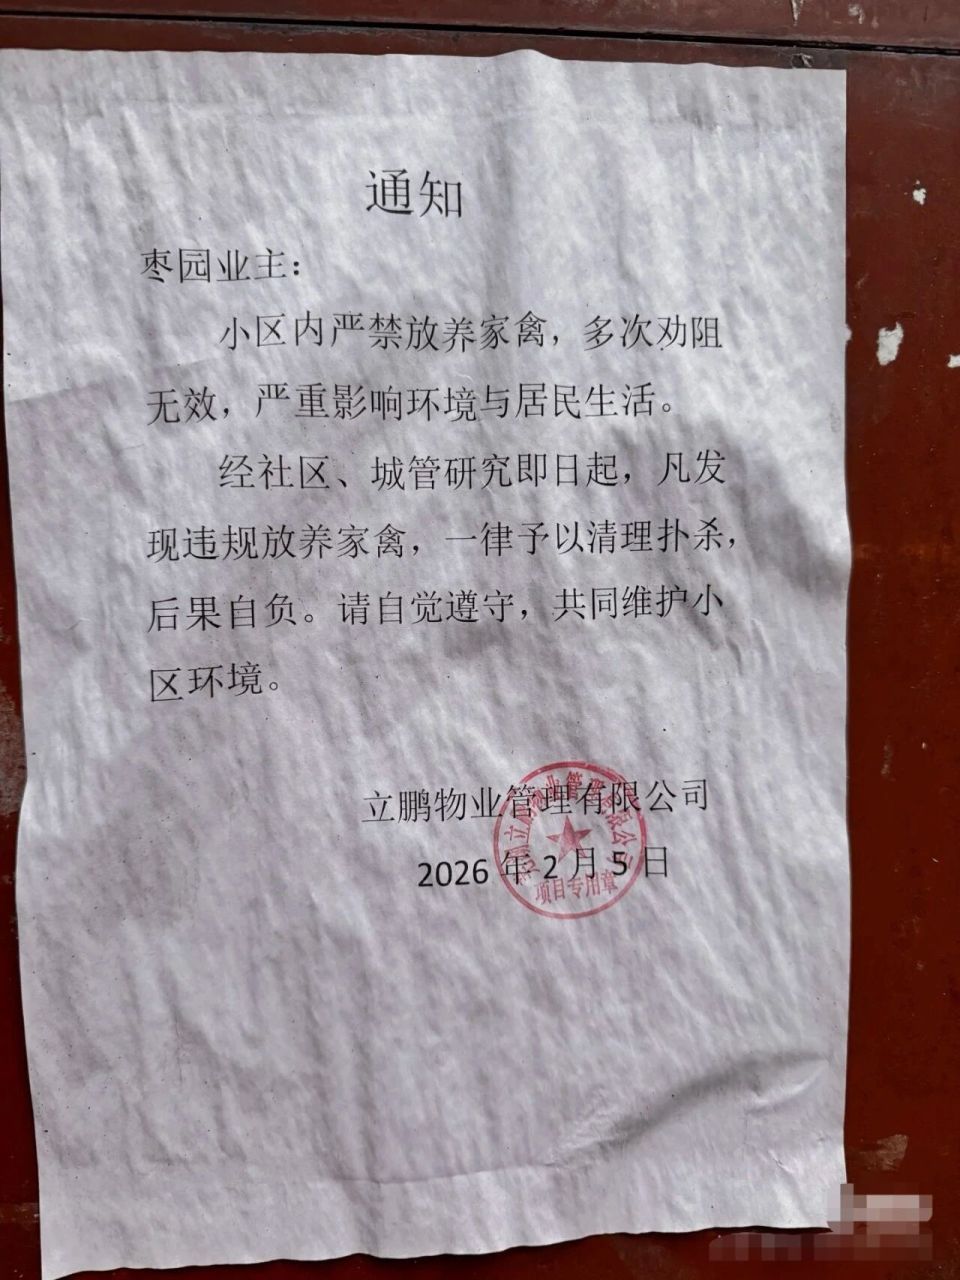 通知
枣园业主：
小区内严禁放养家禽，多次劝阻
无效，严重影响环境与居民生活。
经社区、城管研究即日起，凡发
现违规放养家禽，一律予以清理扑杀，
后果自负。请自觉遵守，共同维护小
区环境。
立鹏物业管理有限公司
2026年2月5日
立鹏物业管理有限公司
项目专用章